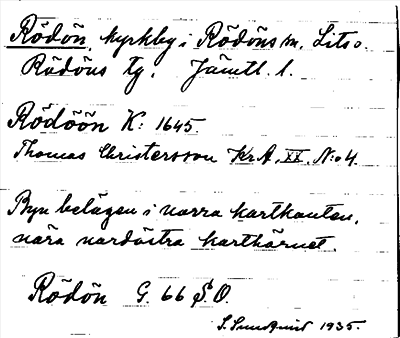 Rödön, kyrkby i Rödöns sn. Lits o.
Rödöns tg. Jämtl. l.
Rödöön K: 1645.
Thomas Christersson Kr.A. XX. N:o 4.
Byn belägen i norra kartkanten,
nära nordöstra karthörnet.
Rödön G. 66 S.O.
S. Sundquist 1935.